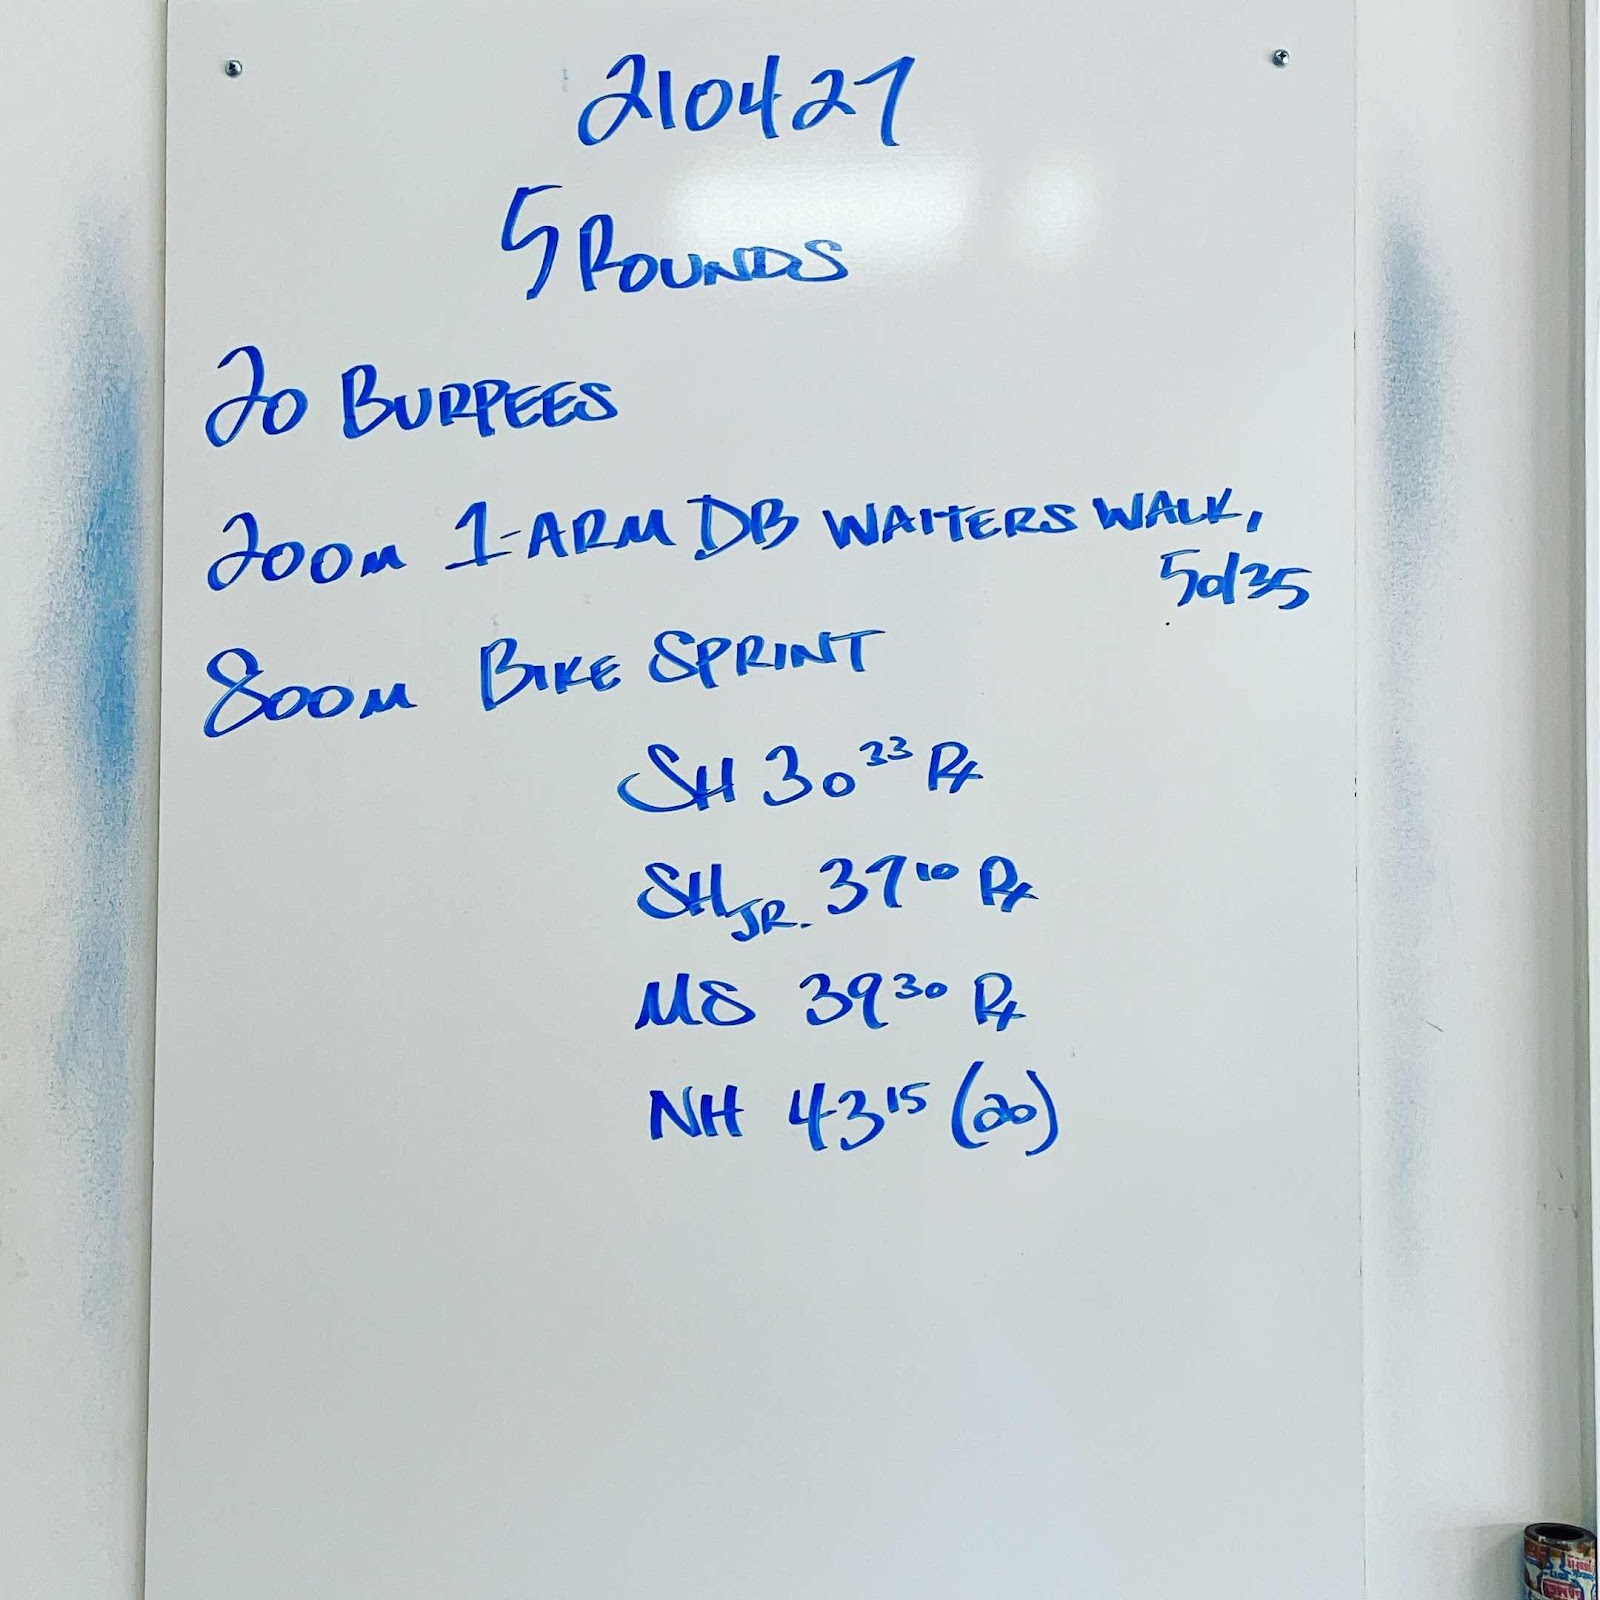 210427
5 ROUNDS
20 BURPEES
200m 1-ARM DB WAITERS WALK,
50/35
800m BIKE SPRINT
SH 30 33 Rx
SH JR. 37 10 Rx
MS 39 30 Rx
NH 43 15 (20)